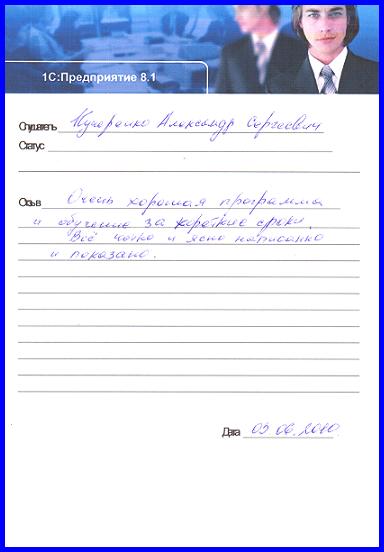 1С:Предприятие 8.1
Слушатель Кучеренко Александр Сергеевич
Статус
Отзыв Очень хорошая программа
и обучение за короткие сроки.
Всё чётко и ясно написанно
и показано.
Дата 03.06.2010.